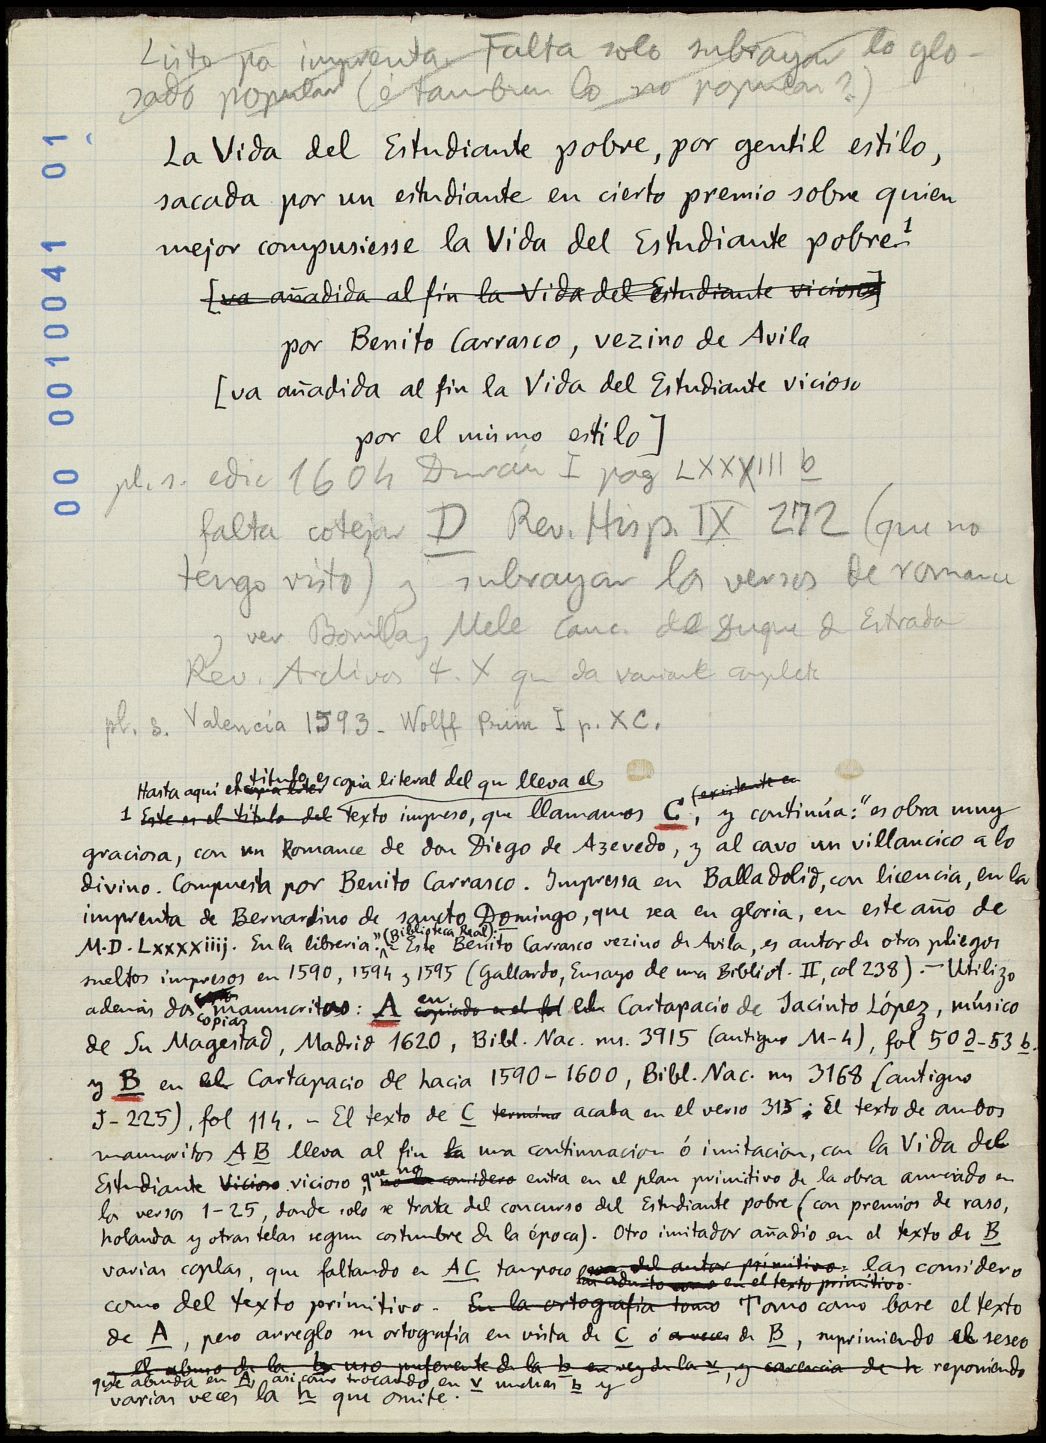 Listo pa imprenta. Falta solo subrayar lo glo-
sado popular (é tambien lo no popular?)
00 0010041 01
La Vida del Estudiante pobre, por gentil estilo,
sacada por un estudiante en cierto premio sobre quien
mejor compusiesse la Vida del Estudiante pobre 1
[va añadida al fin la Vida del Estudiante vicioso]
por Benito Carrasco, vezino de Avila
[va añadida al fin la Vida del Estudiante vicioso
por el mismo estilo]
pl. s. edic 1604 Durán I pag LXXXIII b
falta cotejar D Rev. Hisp. IX 272 (que no
tengo visto) y subrayar los versos de romance
y ver Bonilla y Mele Canc. del Duque de Estrada
Rev. Archivos t. X que da variante completa
pl. s. Valencia 1593 - Wolff Prim I p. XC.
Hasta aqui el título es copia literal del que lleva el
1 Este es el título del texto impreso, que llamamos C (existente en, y continúa: "es obra muy
graciosa, con un Romance de don Diego de Azevedo, y al cavo un villancico a lo
divino. Compuesta por Benito Carrasco. Impressa en Balladolid, con licencia, en la
imprenta de Bernardino de sancto Domingo, que sea en gloria, en este año de
M.D. LXXXXiiij. En la libreria." (Biblioteca Real). - Este Benito Carrasco vezino de Avila, es autor de otros pliegos
sueltos impresos en 1590, 1594 y 1595 (Gallardo, Ensayo de una Bibliot. II, col 238). - Utilizo
además dos copias manuscritas: A en copiado en el fol el Cartapacio de Jacinto López, músico
de Su Magestad, Madrid 1620, Bibl. Nac. ms. 3915 (antiguo M-4), fol 50 d - 53 b.
y B en el Cartapacio de hacia 1590-1600, Bibl. Nac. ms 3168 (antiguo
J-225), fol 114. - El texto de C termina acaba en el verso 315; El texto de ambos
manuscritos A B lleva al fin la una continuacion ó imitacion, con la Vida del
Estudiante Vicioso vicioso, que no no la considero entra en el plan primitivo de la obra anunciado en
los versos 1-25, donde solo se trata del concurso del Estudiante pobre (con premios de raso,
holanda y otras telas segun costumbre de la época). Otro imitador añadio en el texto de B
varias coplas, que faltando en AC tampoco son del autor primitivo. las considero
las admito como en el texto primitivo.
como del texto primitivo. En la ortografia tomo Tomo como base el texto
de A, pero arreglo su ortografia en vista de C ó a veces de B, suprimiendo el seseo
el abuso de la b uso preferente de la b en vez de la v, y carencia de h reponiendo
que abunda en A, asi como trocando en v muchas b y
varias veces la h que omite.